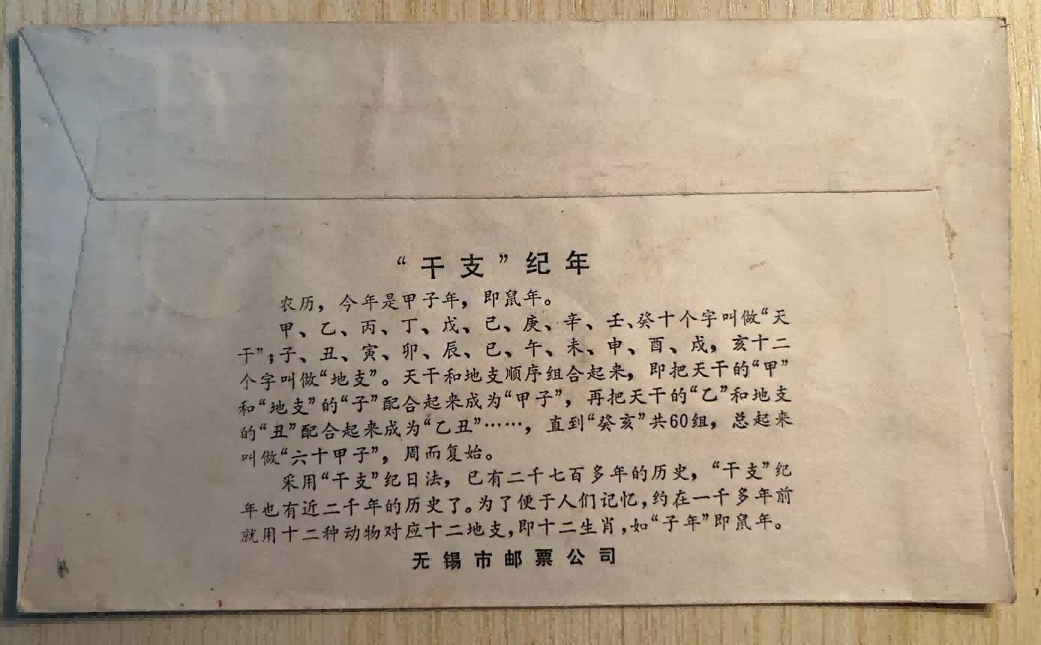 “干支”纪年
农历，今年是甲子年，即鼠年。
甲、乙、丙、丁、戊、己、庚、辛、壬、癸十个字叫做“天
干”；子、丑、寅、卯、辰、巳、午、未、申、酉、戌，亥十二
个字叫做“地支”。天干和地支顺序组合起来，即把天干的“甲”
和“地支”的“子”配合起来成为“甲子”，再把天干的“乙”和地支
的“丑”配合起来成为“乙丑”……，直到“癸亥”共60组，总起来
叫做“六十甲子”，周而复始。
采用“干支”纪日法，已有二千七百多年的历史，“干支”纪
年也有近二千年的历史了。为了便于人们记忆，约在一千多年前
就用十二种动物对应十二地支，即十二生肖，如“子年”即鼠年。
无锡市邮票公司